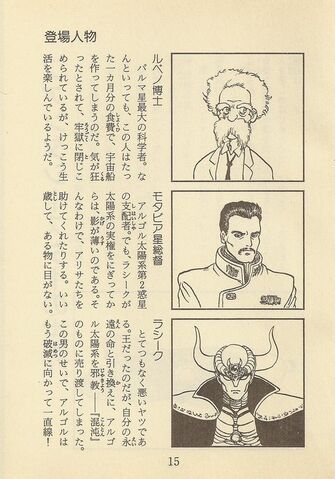 登場人物
ルベノ博士
パルマ星最大の科学者。な
んといっても、この人はたっ
た一カ月分の食費で、宇宙船
を作ってしまうのだ。気が狂
ったとされて、牢獄に閉じこ
められているが、けっこう生
活を楽しんでいるようだ。
モタビア星総督
アルゴル太陽系第2惑星
の支配者。でも、ラシークが
太陽系の実権をにぎってか
らは、影が薄いのである。そ
んなわけで、アリサたちを
助けてくれたりする。いい
歳して、ある物に目がない。
ラシーク
とてつもなく悪いヤツであ
る。王だったのだが、自分の永
遠の命と引き換えに、アルゴ
ル太陽系を邪教――『混沌』
のものに売り渡してしまった。
この男のせいで、アルゴルは
もう破滅に向かって一直線!
15